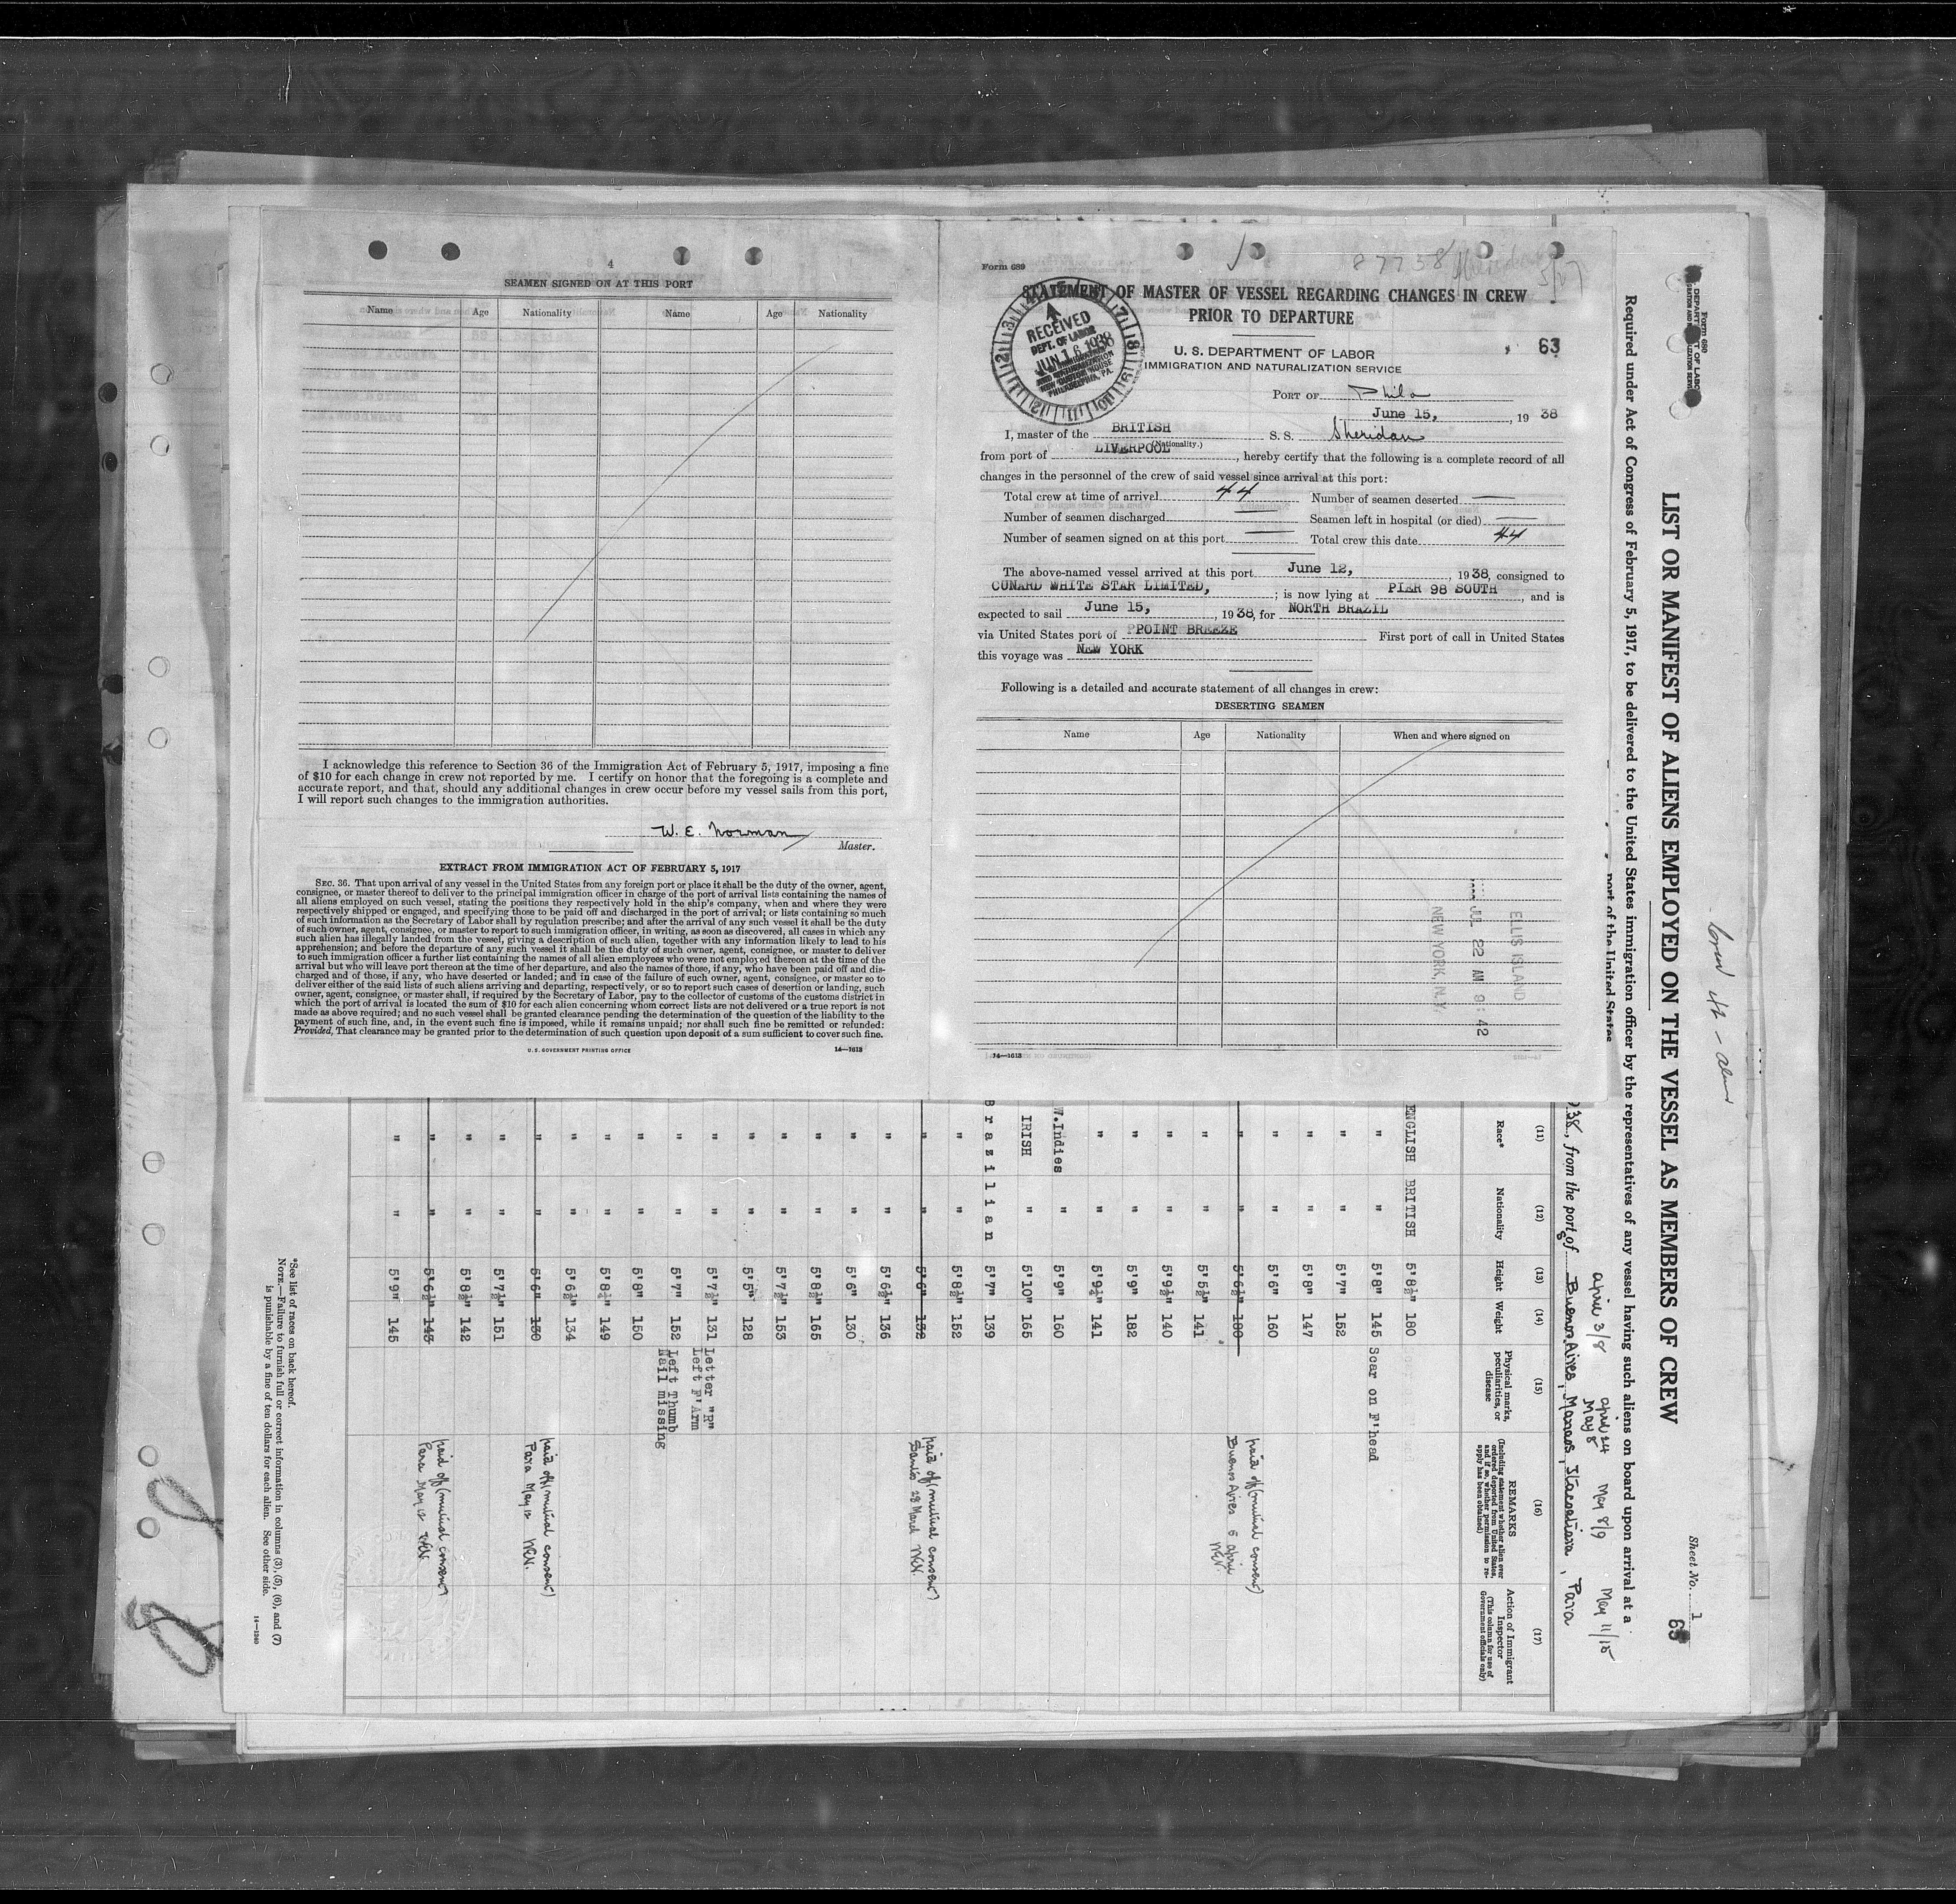 4
SEAMEN SIGNED ON AT THIS PORT
Name Age Nationality Name Age Nationality
I acknowledge this reference to Section 36 of the Immigration Act of February 5, 1917, imposing a fine
of $10 for each change in crew not reported by me. I certify on honor that the foregoing is a complete and
accurate report, and that, should any additional changes in crew occur before my vessel sails from this port,
I will report such changes to the immigration authorities.
W. E. Norman
Master.
EXTRACT FROM IMMIGRATION ACT OF FEBRUARY 5, 1917
SEC. 36. That upon arrival of any vessel in the United States from any foreign port or place it shall be the duty of the owner, agent,
consignee, or master thereof to deliver to the principal immigration officer in charge of the port of arrival lists containing the names of
all aliens employed on such vessel, stating the positions they respectively hold in the ship's company, when and where they were
respectively shipped or engaged, and specifying those to be paid off and discharged in the port of arrival; or lists containing so much
of such information as the Secretary of Labor shall by regulation prescribe; and after the arrival of any such vessel it shall be the duty
of such owner, agent, consignee, or master to report to such immigration officer, in writing, as soon as discovered, all cases in which any
such alien has illegally landed from the vessel, giving a description of such alien, together with any information likely to lead to his
apprehension; and before the departure of any such vessel it shall be the duty of such owner, agent, consignee, or master to deliver
to such immigration officer a further list containing the names of all alien employees who were not employed thereon at the time of the
arrival but who will leave port thereon at the time of her departure, and also the names of those, if any, who have been paid off and dis-
charged and of those, if any, who have deserted or landed; and in case of the failure of such owner, agent, consignee, or master so to
deliver either of the said lists of such aliens arriving and departing, respectively, or so to report such cases of desertion or landing, such
owner, agent, consignee, or master shall, if required by the Secretary of Labor, pay to the collector of customs of the customs district in
which the port of arrival is located the sum of $10 for each alien concerning whom correct lists are not delivered or a true report is not
made as above required; and no such vessel shall be granted clearance pending the determination of the question of the liability to the
payment of such fine, and, in the event such fine is imposed, while it remains unpaid; nor shall such fine be remitted or refunded:
Provided, That clearance may be granted prior to the determination of such question upon deposit of a sum sufficient to cover such fine.
U.S. GOVERNMENT PRINTING OFFICE 14—1613
87738
Form 689
STATEMENT OF MASTER OF VESSEL REGARDING CHANGES IN CREW
PRIOR TO DEPARTURE
63
RECEIVED
DEPT. OF LABOR
JUN 16 1938
PHILADELPHIA, PA.
U. S. DEPARTMENT OF LABOR
IMMIGRATION AND NATURALIZATION SERVICE
PORT OF Phila
June 15, , 19 38
I, master of the BRITISH S. S. Sheridan
(Nationality.)
from port of LIVERPOOL , hereby certify that the following is a complete record of all
changes in the personnel of the crew of said vessel since arrival at this port:
Total crew at time of arrival 44 Number of seamen deserted —
Number of seamen discharged — Seamen left in hospital (or died) —
Number of seamen signed on at this port — Total crew this date 44
The above-named vessel arrived at this port June 12, , 1938, consigned to
CUNARD WHITE STAR LIMITED, ; is now lying at PIER 98 SOUTH , and is
expected to sail June 15, , 1938, for NORTH BRAZIL
via United States port of PPOINT BREEZE First port of call in United States
this voyage was NEW YORK
Following is a detailed and accurate statement of all changes in crew:
DESERTING SEAMEN
Name Age Nationality When and where signed on
ELLIS ISLAND
JUL 22 AM 9:42
NEW YORK, N.Y.
14—1613
Form 689
Sheet No. 1
63
LIST OR MANIFEST OF ALIENS EMPLOYED ON THE VESSEL AS MEMBERS OF CREW
Required under Act of Congress of February 5, 1917, to be delivered to the United States immigration officer by the representatives of any vessel having such aliens on board upon arrival at a
port of the United States
April 3/8 April 24 May 8 May 8/9 May 11/15
38, from the port of Buenos Aires, Manaos, Itacoatiara, Para
(11) (12) (13) (14) (15) (16) (17)
Race* Nationality Height Weight Physical marks, peculiarities, or disease REMARKS (Including statement whether alien ever ordered deported from United States, and if so, whether permission to re-apply has been obtained) Action of Immigrant Inspector (This column for use of Government officials only)
ENGLISH BRITISH 5'8½" 180
" " 5'8" 145 Scar on F'head
" " 5'7" 152
" " 5'8" 147
" " 5'6" 160
" " 5'6½" 180 paid off (mutual consent) Buenos Aires 6 April WEN.
" " 5'5½" 141
" " 5'9½" 140
" " 5'9" 182
" " 5'9½" 141
W.Indies " 5'9" 160
IRISH " 5'10" 165
Brazilian 5'7" 139
" " 5'8½" 152
" " 5'6" 132 paid off (mutual consent) Santos 28 March WEN.
" " 5'6½" 136
" " 5'6" 130
" " 5'8½" 165
" " 5'7½" 153
" " 5'5" 128
" " 5'7½" 131 Letter "R" Left F'Arm
" " 5'7" 152 Left Thumb Nail missing
" " 5'8" 150
" " 5'8½" 149
" " 5'6½" 134
" " 5'6" 130 paid off (mutual consent) Para May 12 WEN.
" " 5'7½" 151
" " 5'8½" 142
" " 5'6½" 143 paid off (mutual consent) Para May 12 WEN.
" " 5'9" 145
*See list of races on back hereof.
NOTE.—Failure to furnish full or correct information in columns (3), (5), (6), and (7)
is punishable by a fine of ten dollars for each alien. See other side.
14—1240